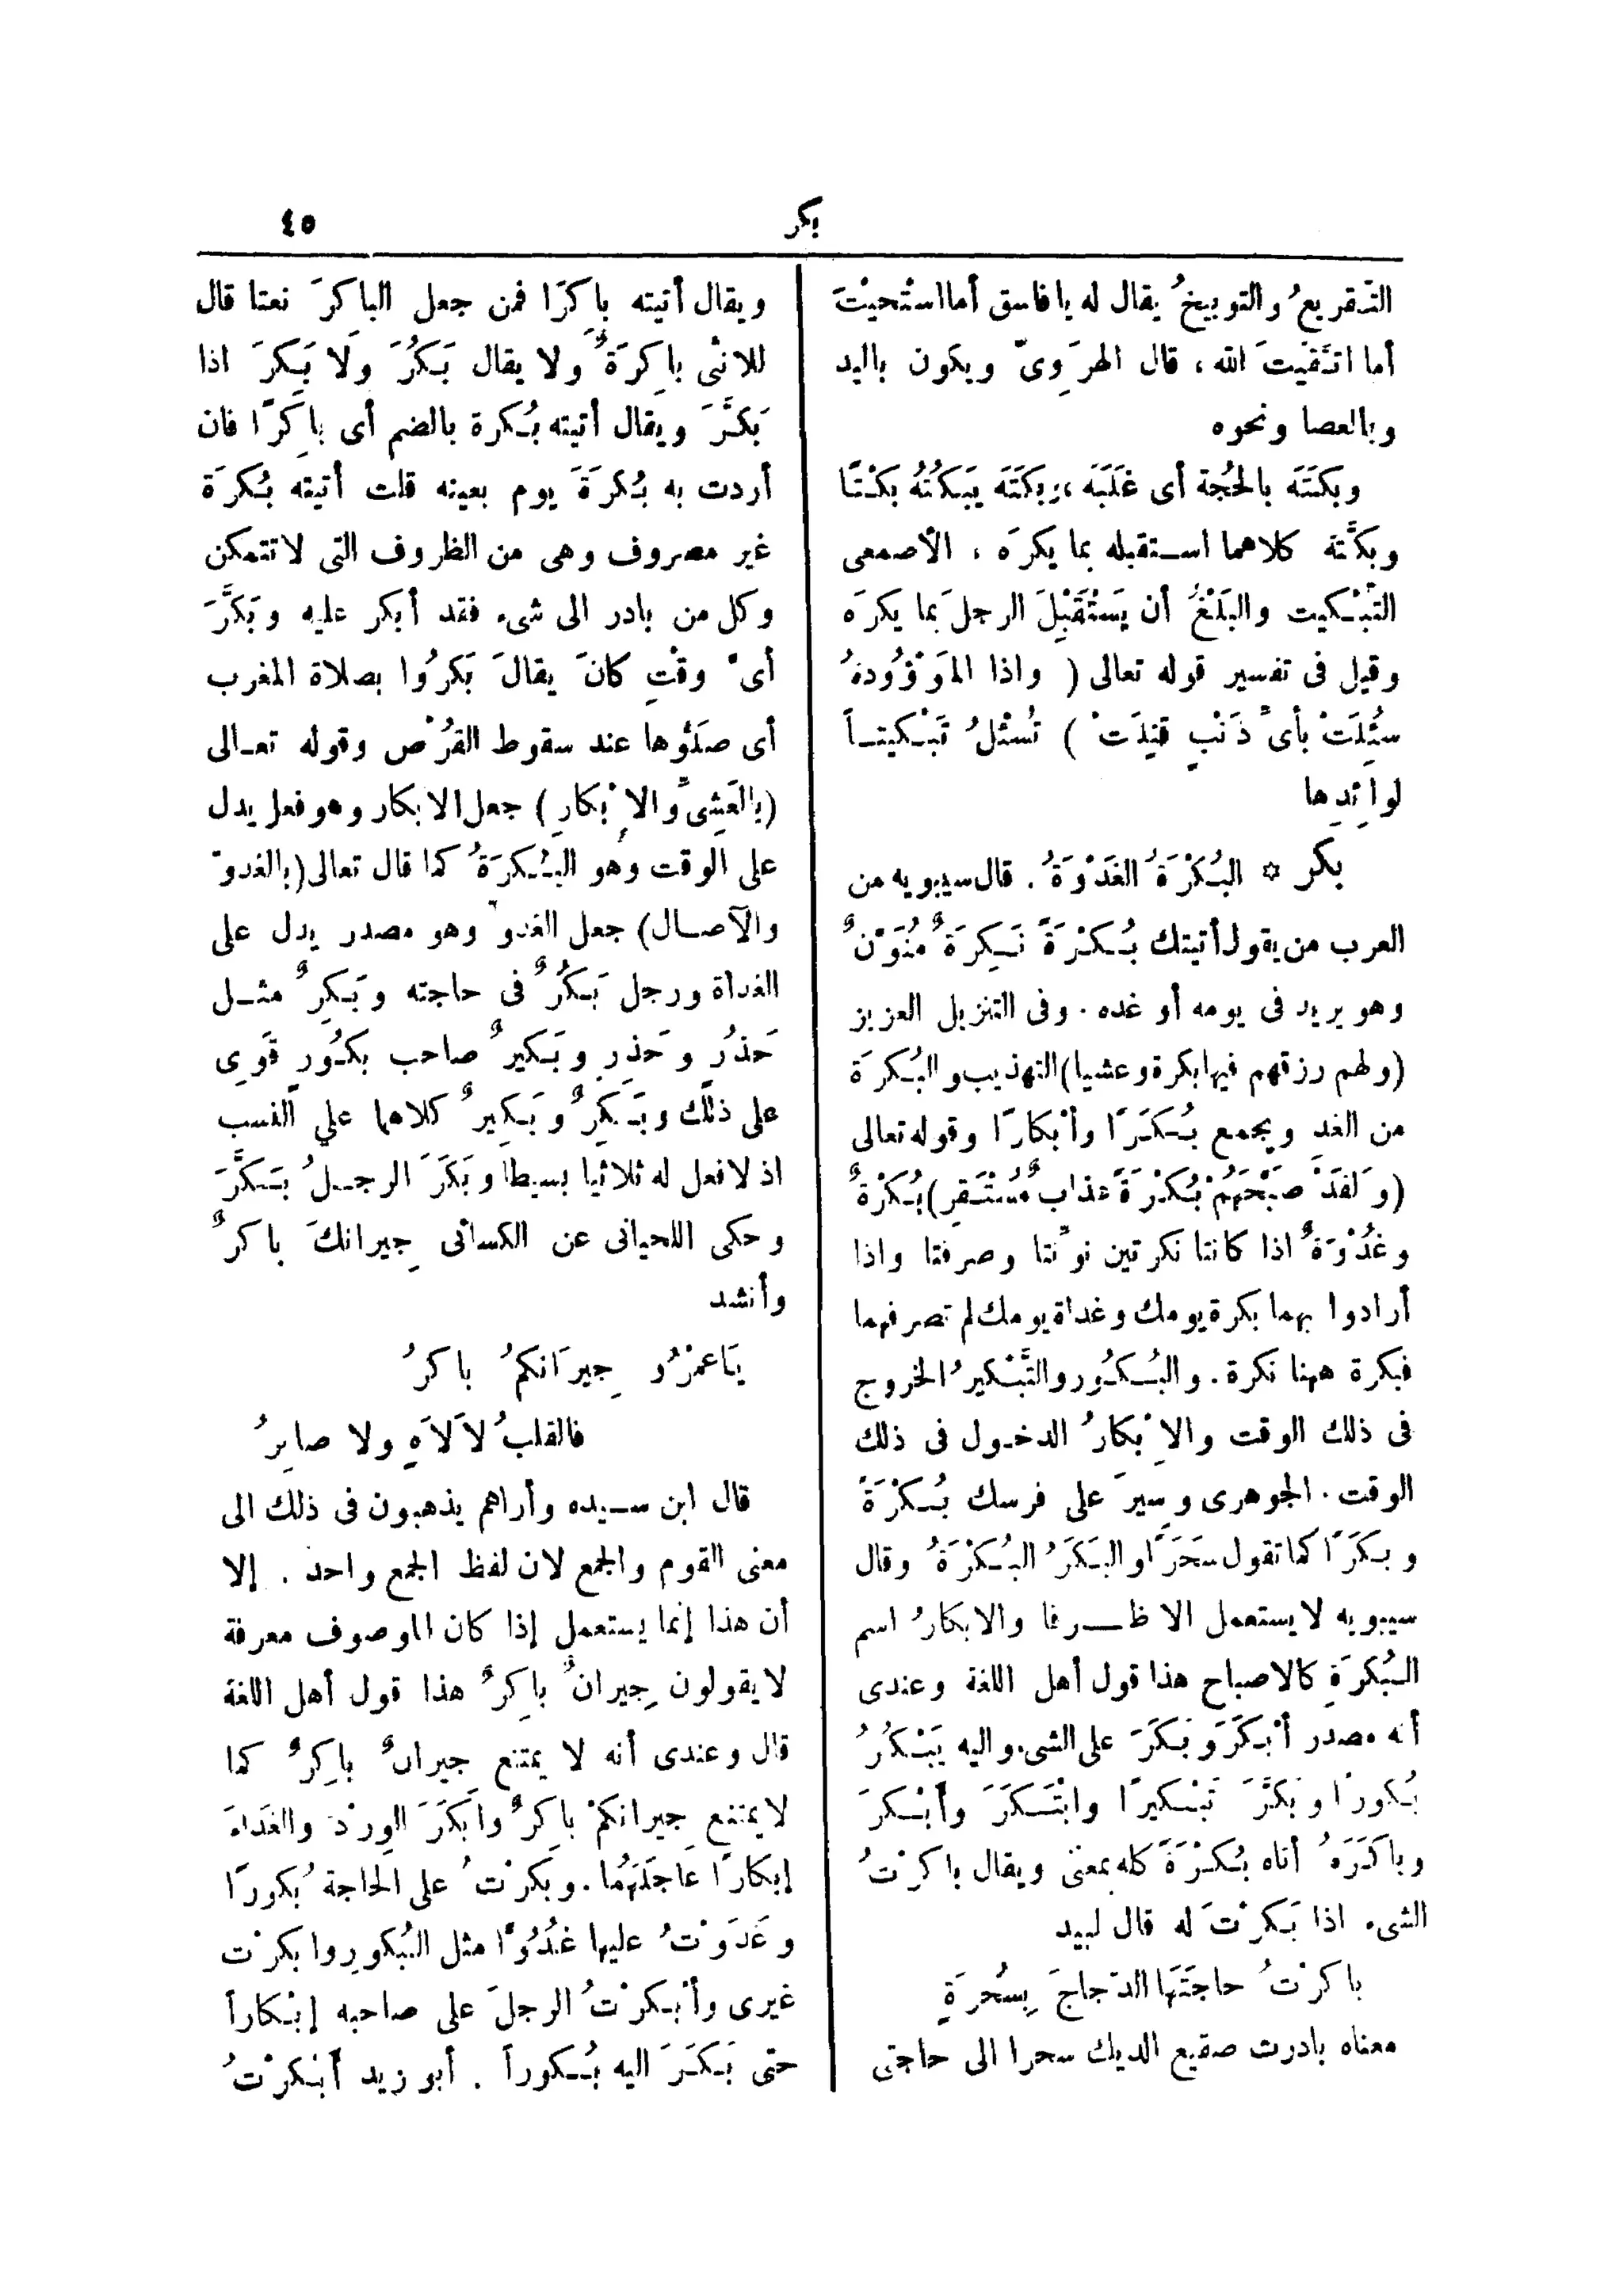 بكر
٤٥
التقريعُ والتوبيخُ يقال له يا فاسق أما استْحيَيْتَ
أما اتَّقَيتَ الله ، قال الهرَوِىّ ويكون باليد
وبالعصا ونحوه
وبكَتَه بالحُجة أى غَلَبَه ، وبكَتَه يَبكُتُهُ بَكْتًا
وبكَّتَهُ كلاهما استقبله بما يكرَه ، الأصمعى
التَّبْكيت والبَلْغُ أن يَسْتَقْبِلَ الرجلَ بما يكرَه
وقيل فى تفسير قوله تعالى ( واذا المَوْؤُودةُ
سُئِلَتْ بأىّ ذَنْبٍ قُتِلَتْ ) تُسْئَلُ تَبْكيتاً
لوائدِها
بكر * البُكْرَةُ الغَدْوَةُ . قال سيبويه من
العرب من يقول أتيتك بُكْرَةً نَكِرَةٌ مُنَوَّنٌ
وهو يريد فى يومه أو غده . وفى التنزيل العزيز
(ولهم رزقهم فيها بكرة وعشيا) التهذيب والبُكرَة
من الغد ويجمع بُكَرًا وأبْكارًا وقوله تعالى
(وَلَقَدْ صَبَّحَهُمْ بُكْرَةً عذابٌ مُسْتَقر) بُكرَةٌ
وغُدْوَةٌ اذا كانتا نكرتين نوّنتا وصرفتا واذا
أرادوا بهما بكرة يومك وغداة يومك لم تصرفهما
فبكرة ههنا نكرة . والبُكُور والتَّبْكيرُ الخروج
فى ذلك الوقت والاِبْكارُ الدخول فى ذلك
الوقت . الجوهرى وسِيرَ على فرسك بُكْرَةً
وبكَرًا كما تقول سَحَرًا والبَكَرُ البُكْرَةُ وقال
سيبويه لا يستعمل الا ظرفا والابكارُ اسم
البُكرَةِ كالاصباح هذا قول أهل اللغة وعندى
أنه مصدر أبْكَرَ وبَكَرَ على الشىء واليه يَبْكُرُ
بُكورًا وبكَّرَ تَبْكيرًا وابْتَكَرَ وأبْكرَ
وباكَرَهُ أتاه بُكْرَةً كله بمعنى ويقال باكرْتُ
الشىء اذا بَكرْتَ له قال لبيد
باكرْتُ حاجَتَها الدّجاجَ بِسُحرَةٍ
معناه بادرت صقيع الديك سحرا الى حاجتى
ويقال أتيته باكِرًا فمن جعل الباكرَ نعتا قال
للانثى باكِرَةٌ ولا يقال بَكُرَ ولا بَكِرَ اذا
بَكَّرَ ويقال أتيته بُكرة بالضم أى باكِرًا فان
أردت به بُكرَةَ يوم بعينه قلت أتيته بُكرَةَ
غير مصروف وهى من الظروف التى لا تتمكن
وكل من بادر الى شىء فقد أبكر عليه وبَكَّرَ
أىّ وقْتٍ كانَ يقالَ بَكرُوا بصلاة المغرب
أى صلَّوُها عند سقوط القُرْص وقوله تعالى
(بالْعَشِىِّ والاِبْكارِ) جعل الابكار وهو فعل يدل
على الوقت وهو البُكرَةُ كما قال تعالى (بالغدوّ
والآصال) جعل الغدو وهو مصدر يدل على
الغداة ورجل بَكُرٌ فى حاجته وبَكِرٌ مثل
حَذُرٍ وحَذِرٍ وبَكيرٌ صاحب بكُورٍ قَوِى
على ذلك وبَكِرٌ وبَكيرٌ كلاهما على النسب
اذ لا فعل له ثلاثيا بسيطا وبَكَرَ الرجلُ بَكَّرَ
وحكى اللحيانى عن الكسائى جِيرانكَ باكرٌ
وأنشد
يَاعَمْرُو جِيرَانكُمُ باكرُ
فالقلبُ لاَ لاَهٍ ولا صابِرُ
قال ابن سيده وأراهم يذهبون فى ذلك الى
معنى القوم والجمع لان لفظ الجمع واحد . إلا
أن هذا إنما يستعمل إذا كان الموصوف معرفة
لا يقولون جِيرانٌ باكِرٌ هذا قول أهل اللغة
قال وعندى أنه لا يمتنع جيرانٌ باكِرٌ كما
لا يمتنع جِيرانكمْ باكِرٌ وأبكَرَ الوِرْدَ والغَدَاءَ
إبكارًا عاجَلَهُما . وبَكرْتُ على الحاجة بُكورًا
وغَدَوْتُ عليها غُدُوًّا مثل البُكورِ وابكرْت
غيرى وأبْكرْتُ الرجلَ على صاحبه إبْكاراً
حتى بَكَرَ اليه بُكوراً . أبو زيد أبْكرْتُ